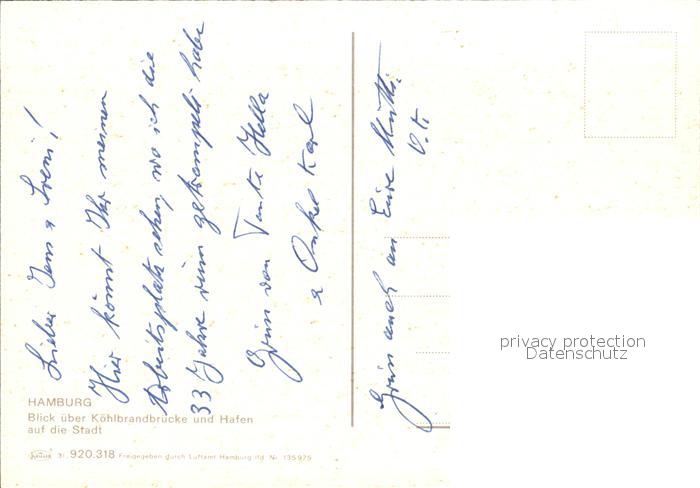 Lieber Jens & Sveni!
Hier könnt Ihr meinen
Arbeitsplatz sehen, wo ich die
33 Jahre rum getrampelt habe
Gruss von Tante Hella
& Onkel Karl
Gruss auch an Eure Mutti.
O.K.
HAMBURG
Blick über Köhlbrandbrücke und Hafen
auf die Stadt
31. 920.318 Freigegeben durch Luftamt Hamburg lfd. Nr. 135975
privacy protection
Datenschutz